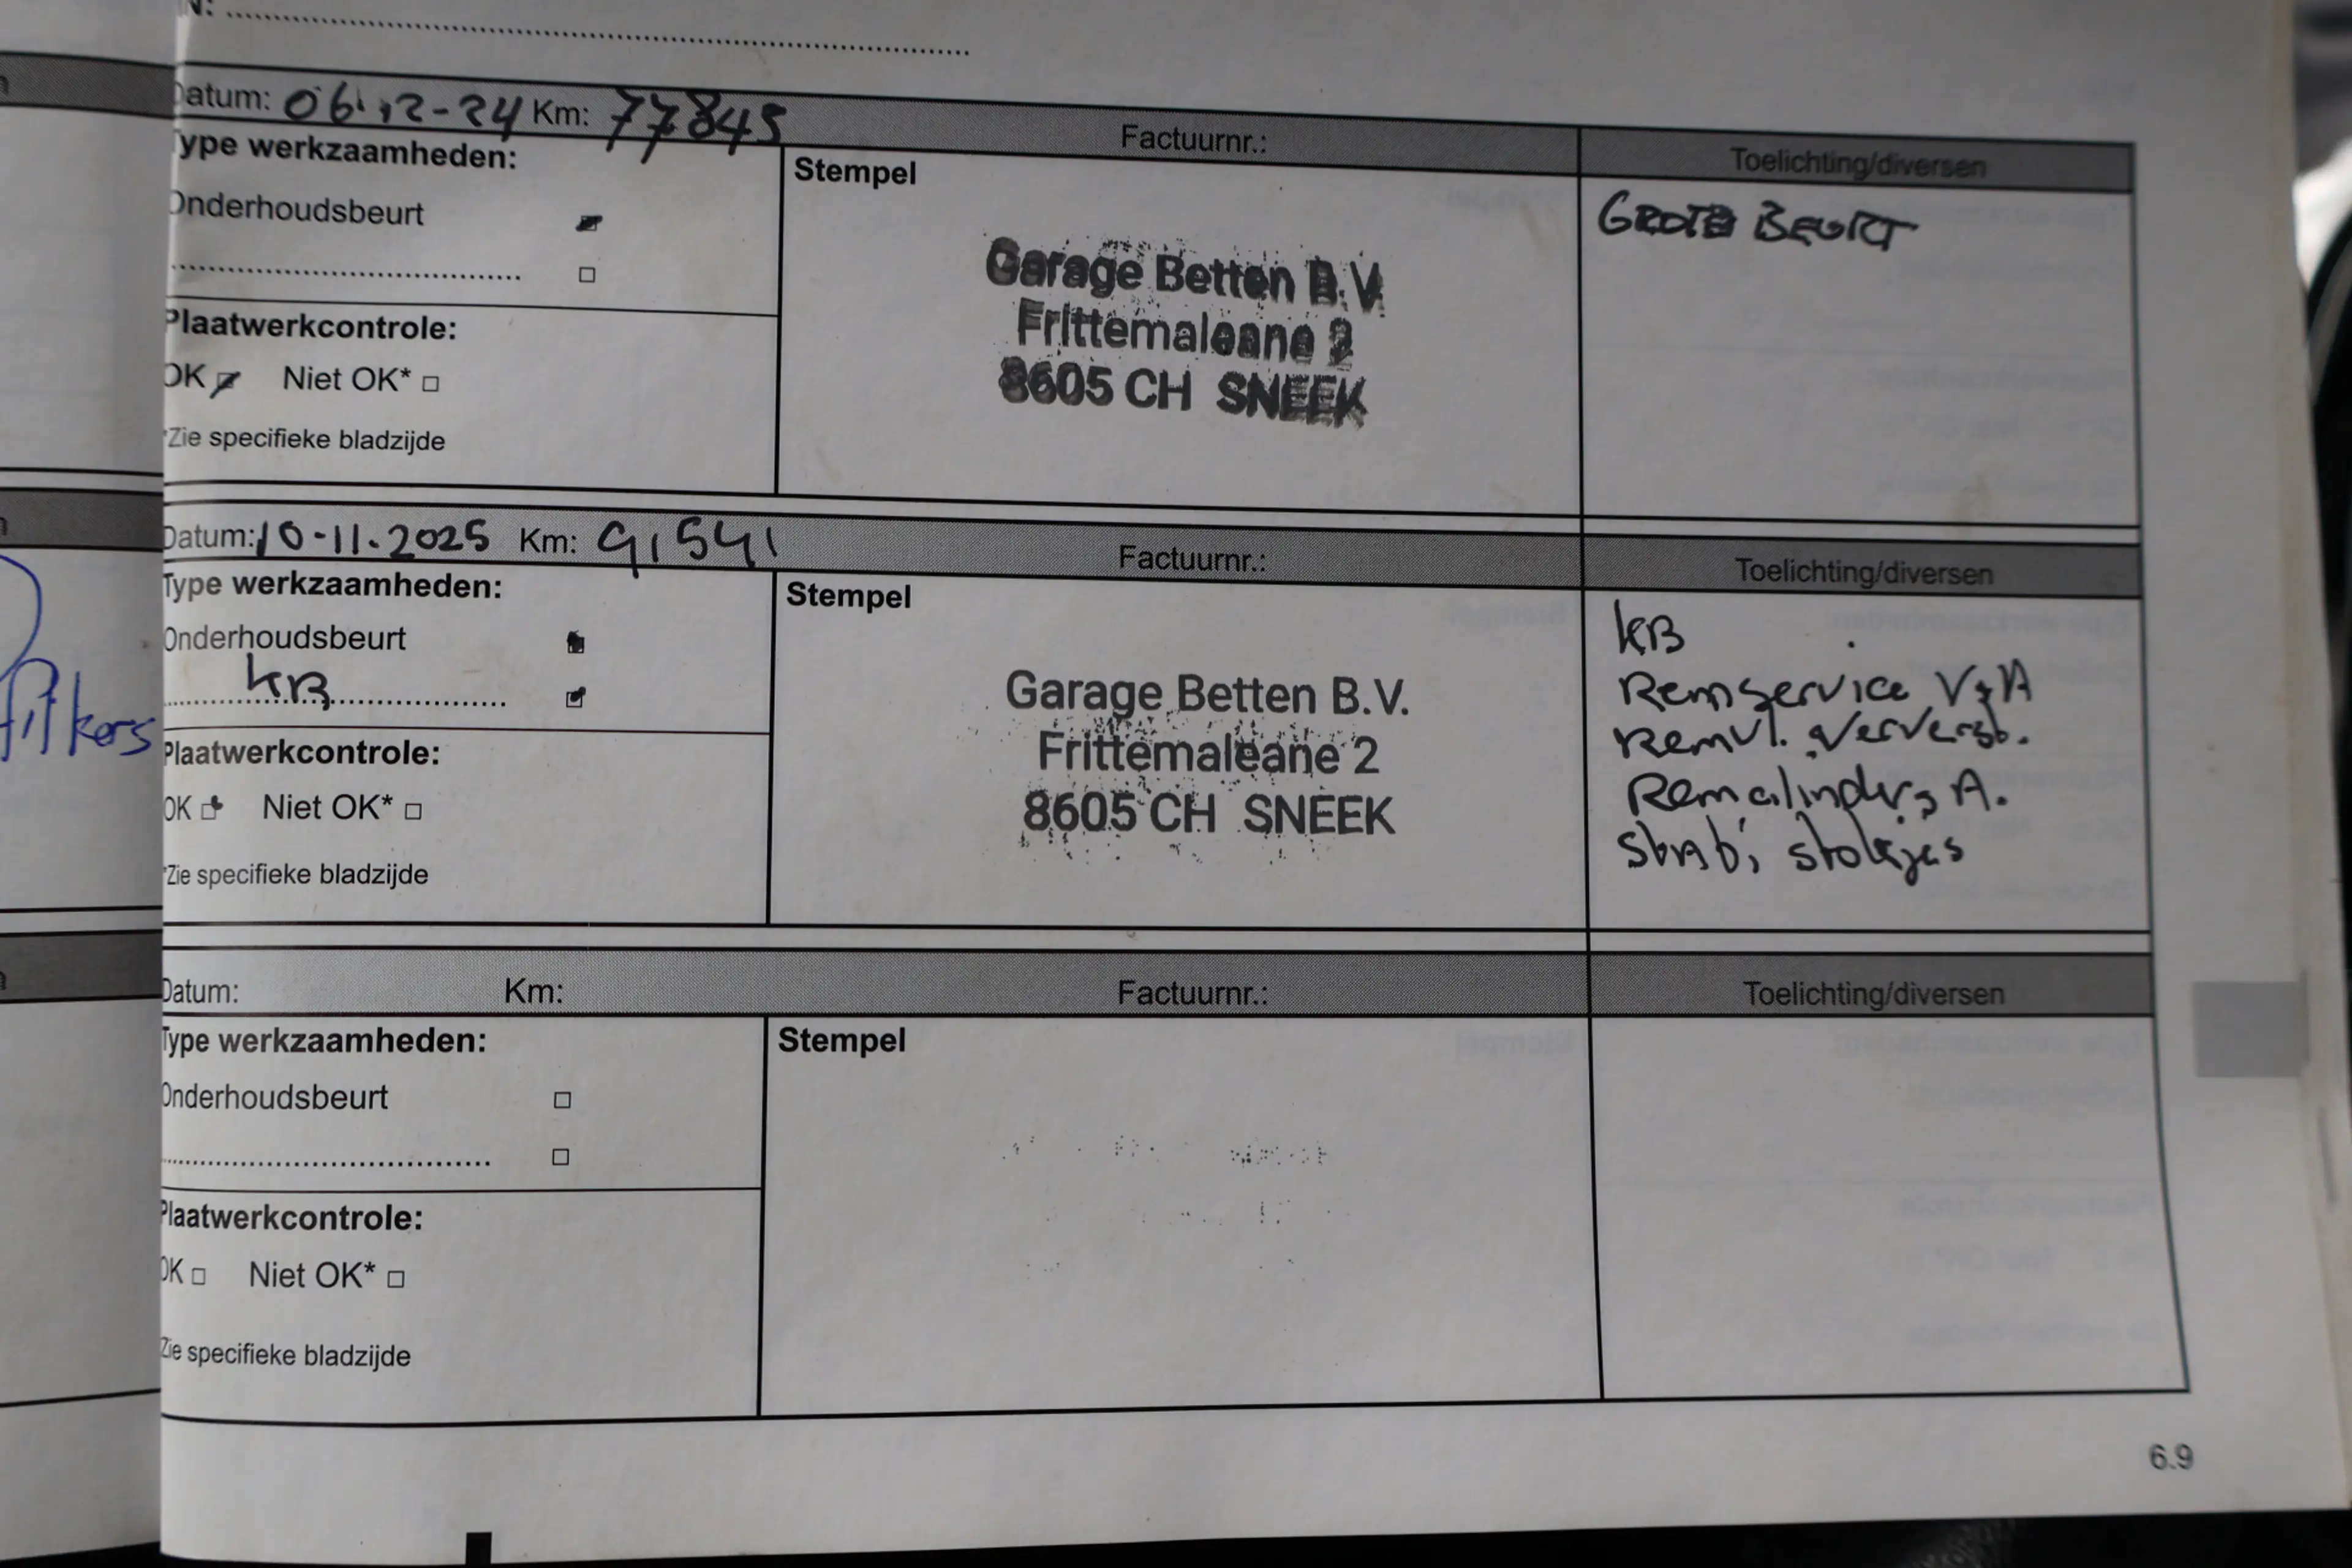 N: ........................................
Datum: 06-12-24 Km: 77845 Factuurnr.: Toelichting/diversen
Type werkzaamheden: Stempel GROTE BEURT
Onderhoudsbeurt
Garage Betten B.V.
Frittemaleane 2
8605 CH SNEEK
Plaatwerkcontrole:
OK Niet OK*
*Zie specifieke bladzijde
Datum: 10-11-2025 Km: 91541 Factuurnr.: Toelichting/diversen
Type werkzaamheden: Stempel
Onderhoudsbeurt
KB
Garage Betten B.V.
Frittemaleane 2
8605 CH SNEEK
Plaatwerkcontrole:
OK Niet OK*
*Zie specifieke bladzijde
KB
Remservice V+A
Remvl. Ververst.
Remcilinders A.
Stab. stokjes
Pijkers
Datum: Km: Factuurnr.: Toelichting/diversen
Type werkzaamheden: Stempel
Onderhoudsbeurt
Plaatwerkcontrole:
OK Niet OK*
Zie specifieke bladzijde
6.9